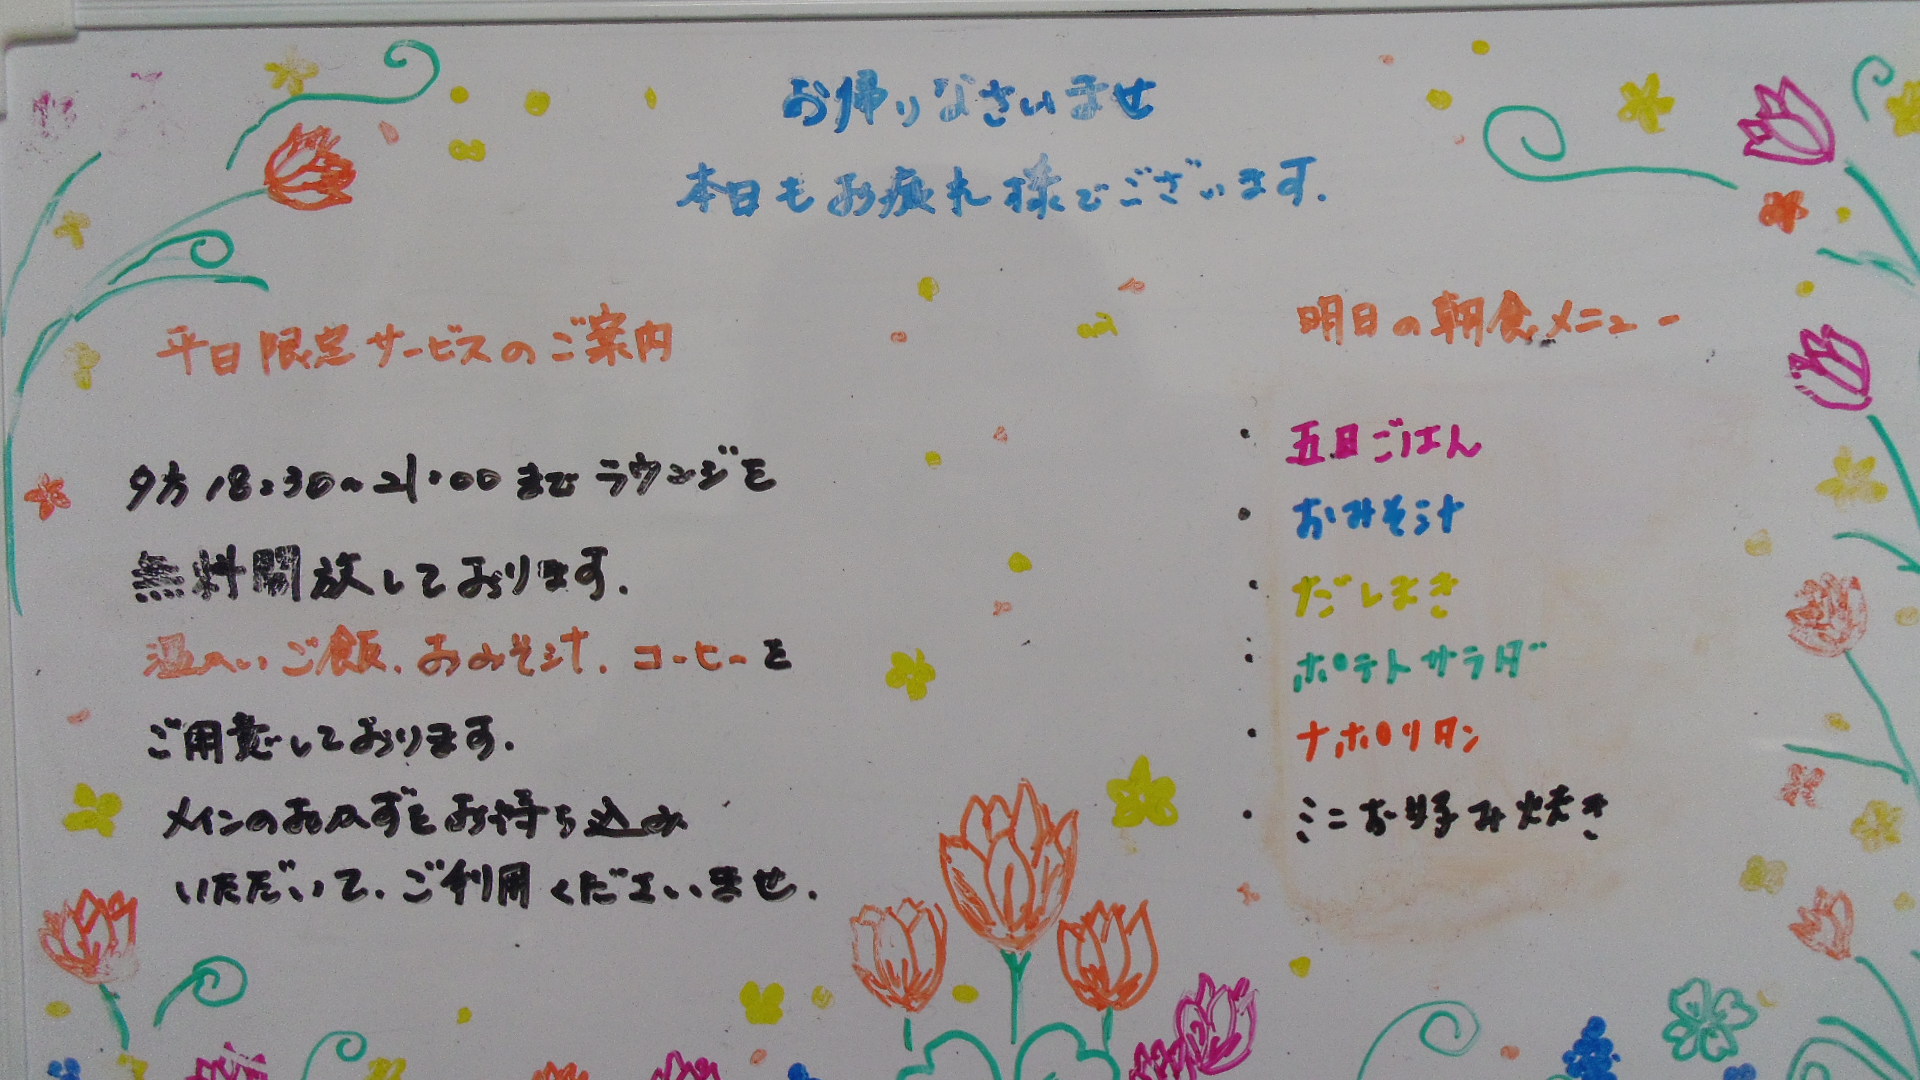 お帰りなさいませ
本日もお疲れ様でございます.
平日限定サービスのご案内
夕方18:30~21:00までラウンジを
無料開放しております.
温かいご飯.おみそ汁.コーヒーを
ご用意しております.
メインのおかずをお持ち込み
いただいて.ご利用くださいませ.
明日の朝食メニュー
・五目ごはん
・おみそ汁
・だしまき
・ポテトサラダ
・ナポリタン
・ミニお好み焼き